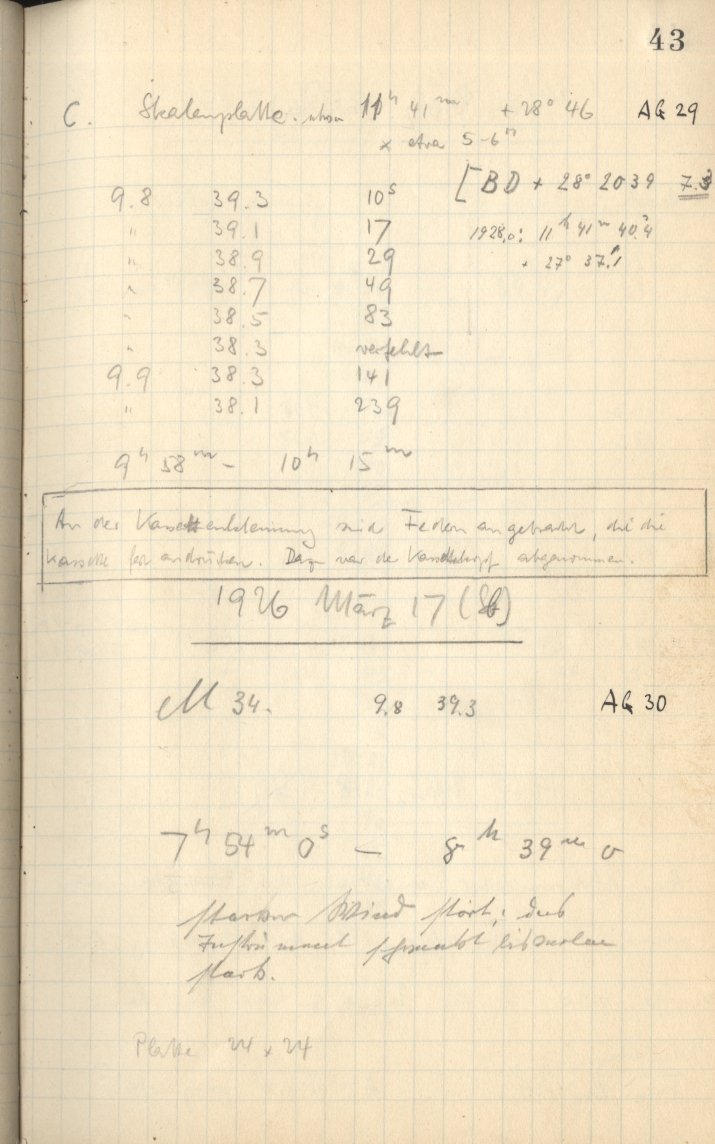 43
C. Skalenplatte. 11ʰ 41ᵐ + 28° 46 AG 29
× etwa 5-6ᵐ
[BD + 28° 2039 7.3
9.8 39.3 10ˢ
" 39.1 17 1928,0: 11ʰ 41ᵐ 40ˢ.4
" 38.9 29 + 27° 37.'1
" 38.7 49
" 38.5 83
" 38.3 verfehlt
9.9 38.3 141
" 38.1 239
9ʰ 58ᵐ - 10ʰ 15ᵐ
An der Kassettenklemmung sind Federn angebracht, die die
Kassette fest andrücken. Dazu war der Kassettenkopf abgenommen.
1926 März 17 (St)
M 34. 9.8 39.3 AG 30
7ʰ 54ᵐ 0ˢ — 8ʰ 39ᵐ 0
starker Wind stört; das
Instrument schwankt bisweilen
stark.
Platte 24 × 24